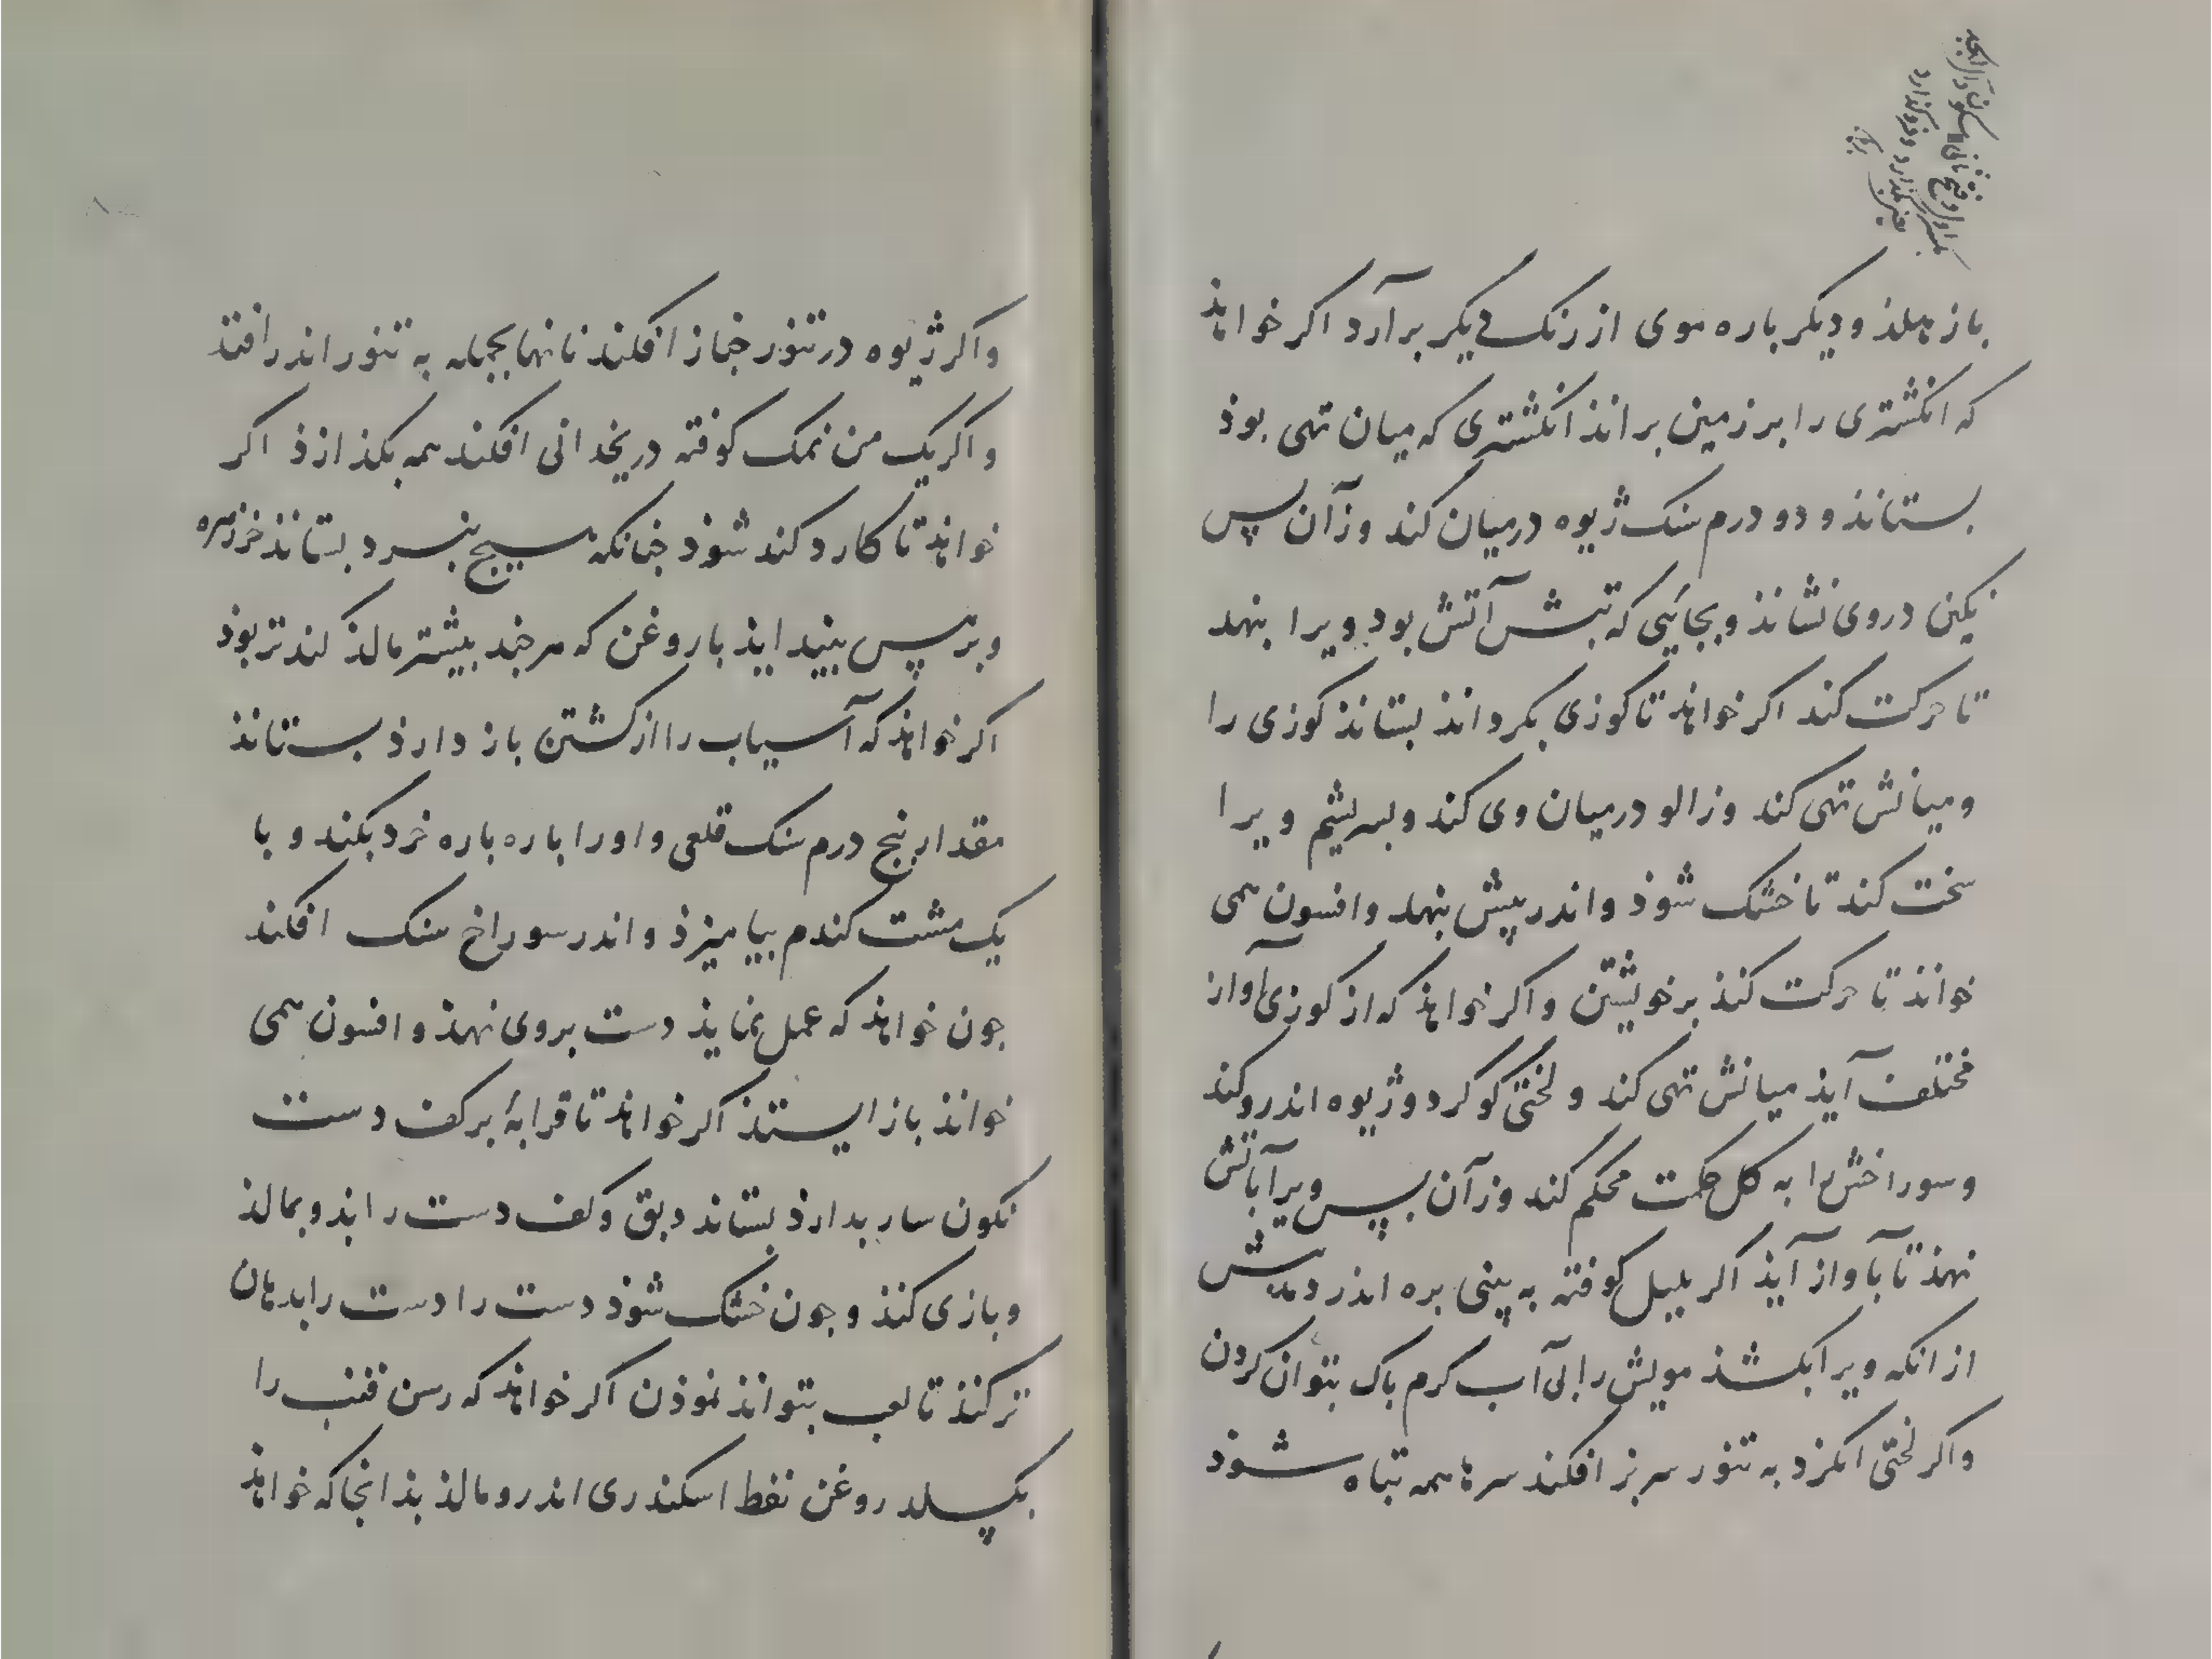 باز هلذ و دیکر باره موی از رنک دیکر برآرد اکر خواهذ
که انکشتری را بر زمین براند انکشتری که میان تهی بوذ
بستانذ و دو درم سنک ژیوه در میان کند وزآن پس
نکین در وی نشانذ و بجائی که تبش آتش بود ویرا بنهد
تا حرکت کند اکر خواهذ تا کوزی بکرداند بستانذ کوزی را
و میانش تهی کند و زالو در میان وی کند و بسریشم ویرا
سخت کند تا خشک شوذ و اندر پیش بنهد و افسون همی
خواند تا حرکت کنذ بر خویشتن و اکر خواهذ که از کوزی آواز
مختلف آیذ میانش تهی کند و لختی کوکرد و ژیوه اندرو کند
و سوراخش را به کل حکمت محکم کند وزآن بپس ویرا بآتش
نهذ تا بآواز آیذ اکر بلبل کوفته به بینی بره اندر دمدش
از انکه ویرا بکشذ مویش را بی آب کرم باک بتوان کردن
و اکر لختی انکزد به تنور سربز افکند سرها همه تباه شوذ
و اکر ژیوه در تنور خباز افکند نانها بجمله به تنور اندر افتذ
و اکر یک من نمک کوفته در یخدانی افکند همه بکذازذ اکر
خواهذ تا کارد کند شوذ جنانکه هیسج نبرد بستانذ خرزهره
و بر پس بینداید با روغن که هر جند بیشتر مالذ کندتر بوذ
اکر خواهذ که آسیاب را از کشتن باز دارذ بستانذ
مقدار پنج درم سنک قلعی و او را باره باره خرد بکند و با
یک مشت کندم بیامیزذ و اندر سوراخ سنک افکند
جون خواهذ که عمل نمایذ دست بروی نهذ و افسون همی
خواند باز ایستذ اکر خواهذ تا قرابهٔ بر کف دست
نکون سار بدارذ بستاند دبق و کف دست را بذو بمالذ
و بازی کنذ و جون خشک شوذ دست را دست را بدهان
تر کنذ تا لعب بتواند نموذن اکر خواهذ که رسن قنب را
بکپسلد روغن نفط اسکندری اندرو مالذ بذانجا که خواهذ